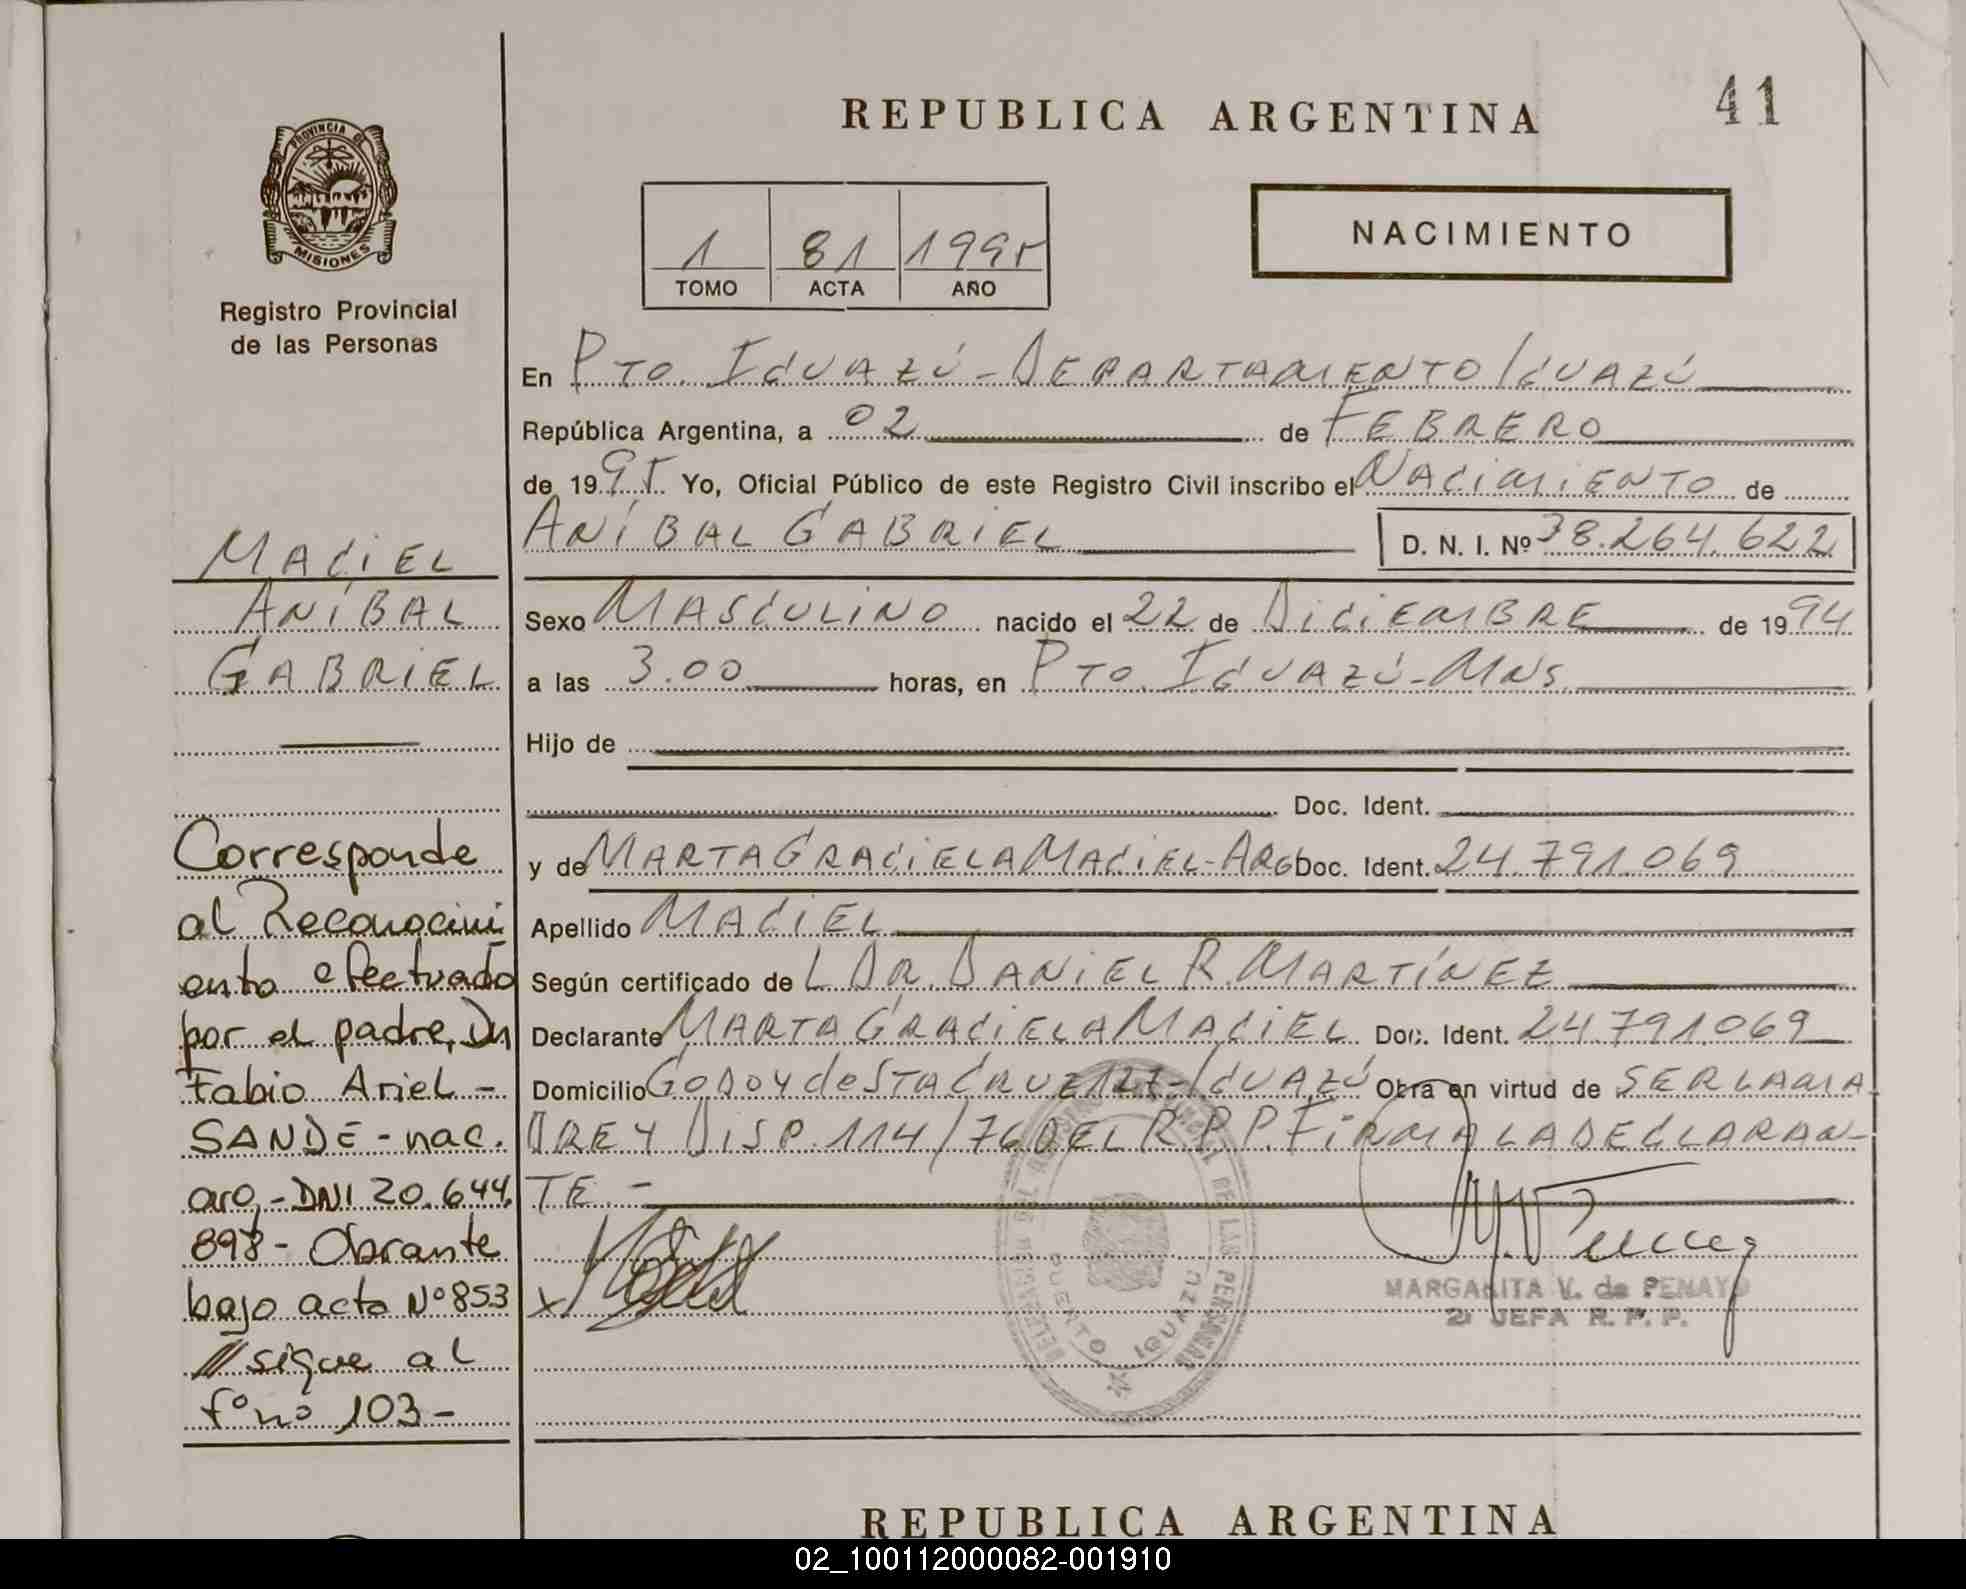 REPUBLICA ARGENTINA
41
PROVINCIA DE
MISIONES
Registro Provincial
de las Personas
1 81 1995
TOMO ACTA AÑO
NACIMIENTO
En PTO. IGUAZÚ - DEPARTAMENTO IGUAZÚ
República Argentina, a 02 de FEBRERO
de 1995 Yo, Oficial Público de este Registro Civil inscribo el NACIMIENTO de
ANÍBAL GABRIEL D. N. I. Nº 38.264.622
Sexo MASCULINO nacido el 22 de DICIEMBRE de 1994
a las 3.00 horas, en PTO. IGUAZÚ - MNS.
Hijo de
Doc. Ident.
y de MARTA GRACIELA MACIEL - ARG Doc. Ident. 24.791.069
Apellido MACIEL
Según certificado de L DR. DANIEL R. MARTÍNEZ
Declarante MARTA GRACIELA MACIEL Doc. Ident. 24.791.069
Domicilio GODOY de STA CRUZ 127 - IGUAZÚ Obra en virtud de SER LA MA
DRE Y DISP. 114/76 DEL R.P.P. FIRMA LA DECLARAN-
TE. -
MARGARITA V. de PENAYO
2ª JEFA R. P. P.
PUERTO IGUAZU
MACIEL
ANÍBAL
GABRIEL
Corresponde
al Reconocimi
ento efectuado
por el padre, Dn
Fabio Ariel -
SANDE - nac.
arg. - DNI 20.644.
898 - Obrante
bajo acta Nº 853
// sigue al
fº nº 103 -
REPUBLICA ARGENTINA
02_100112000082-001910